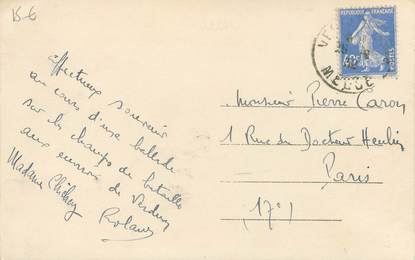 15-6
Affectueux souvenir
au cours d'une ballade
sur les champs de batailles
aux environs de Verdun
Madame
Roland
REPUBLIQUE FRANÇAISE
POSTES
MEUSE
Monsieur Pierre Caron
1 Rue du Docteur Heulin
Paris
(17e)